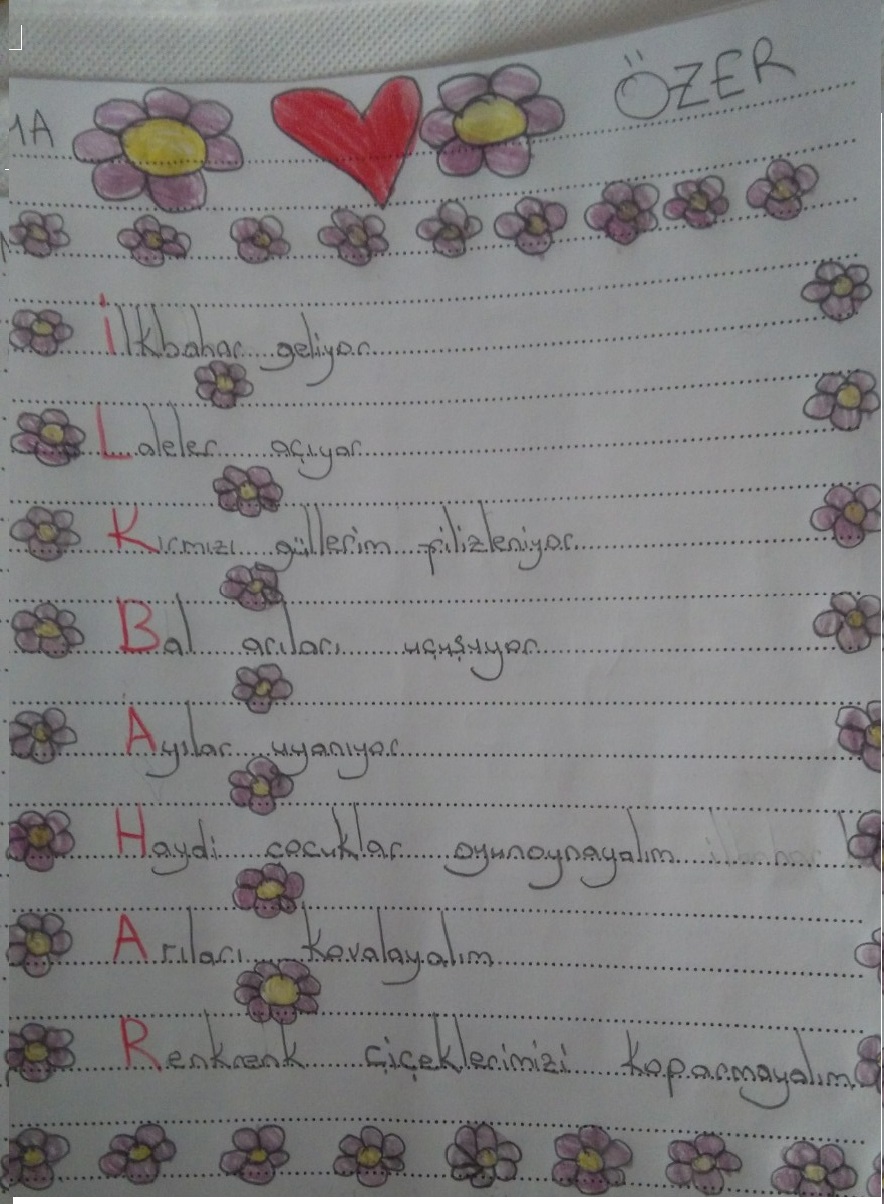 ÖZER
İlkbahar geliyor
Laleler açıyor
Kırmızı güllerim filizleniyor
Bal arıları uçuşuyor
Ayılar uyanıyor
Haydi çocuklar oyunoynayalım
Arıları kovalayalım
Renkrenk çiçeklerimizi koparmayalım